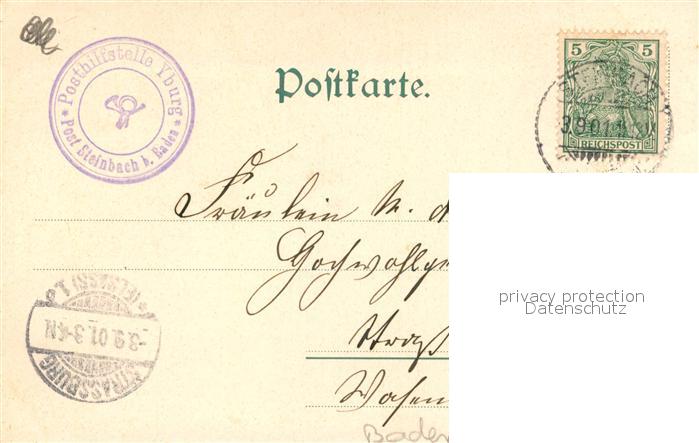 * Posthilfstelle Yburg *
Post Steinbach b. Baden
Postkarte.
5 5
3.9.01
REICHSPOST
Fräulein
Hochwohlge
Straß
privacy protection
Datenschutz
STRASSBURG
-3.9.01. 3-4N
* (ELSASS) 1. *
Wasen
Baden